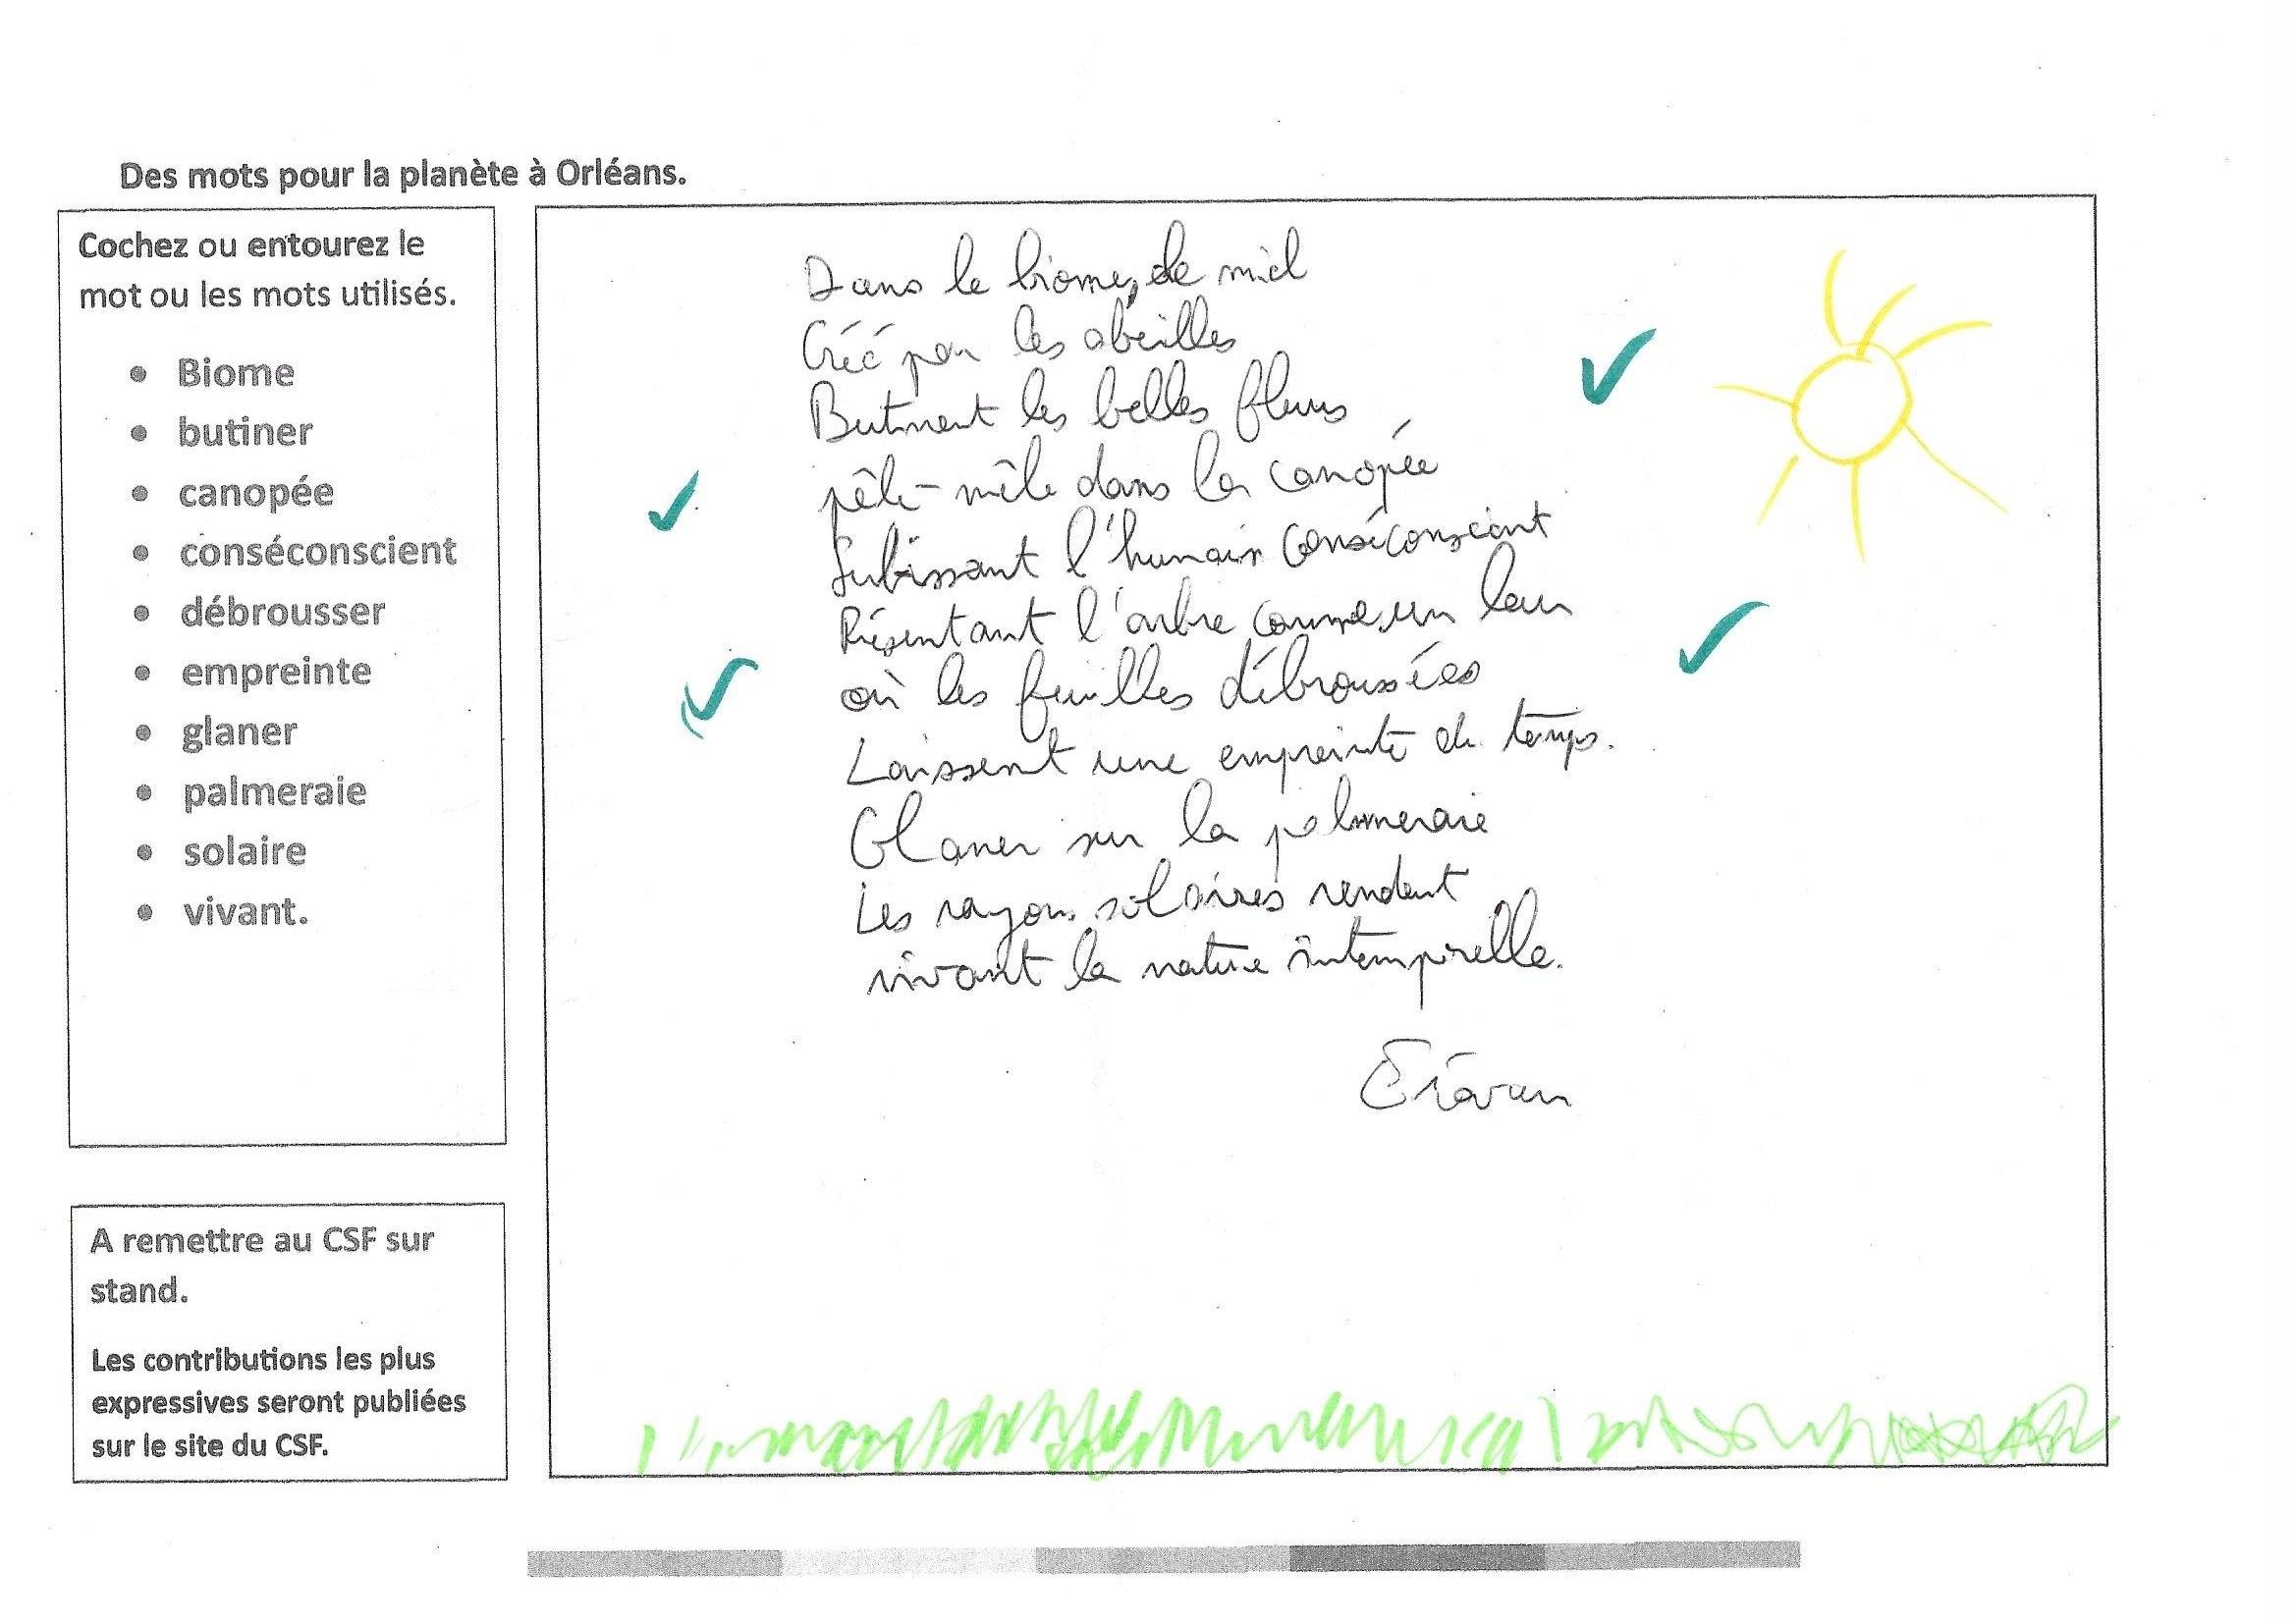 Des mots pour la planète à Orléans.
Cochez ou entourez le
mot ou les mots utilisés.
• Biome
• butiner
• canopée
• conséconscient
• débrousser
• empreinte
• glaner
• palmeraie
• solaire
• vivant.
A remettre au CSF sur
stand.
Les contributions les plus
expressives seront publiées
sur le site du CSF.
Dans le biome, de miel
Créé par les abeilles
Butinent les belles fleurs
pêle-mêle dans la canopée
Subissant l'humain conséconscient
Présentant l'arbre comme un
où les feuilles débroussées
Laissent une empreinte de temps.
Glaner sur la palmeraie
Les rayons solaires rendent
vivant la nature intemporelle.